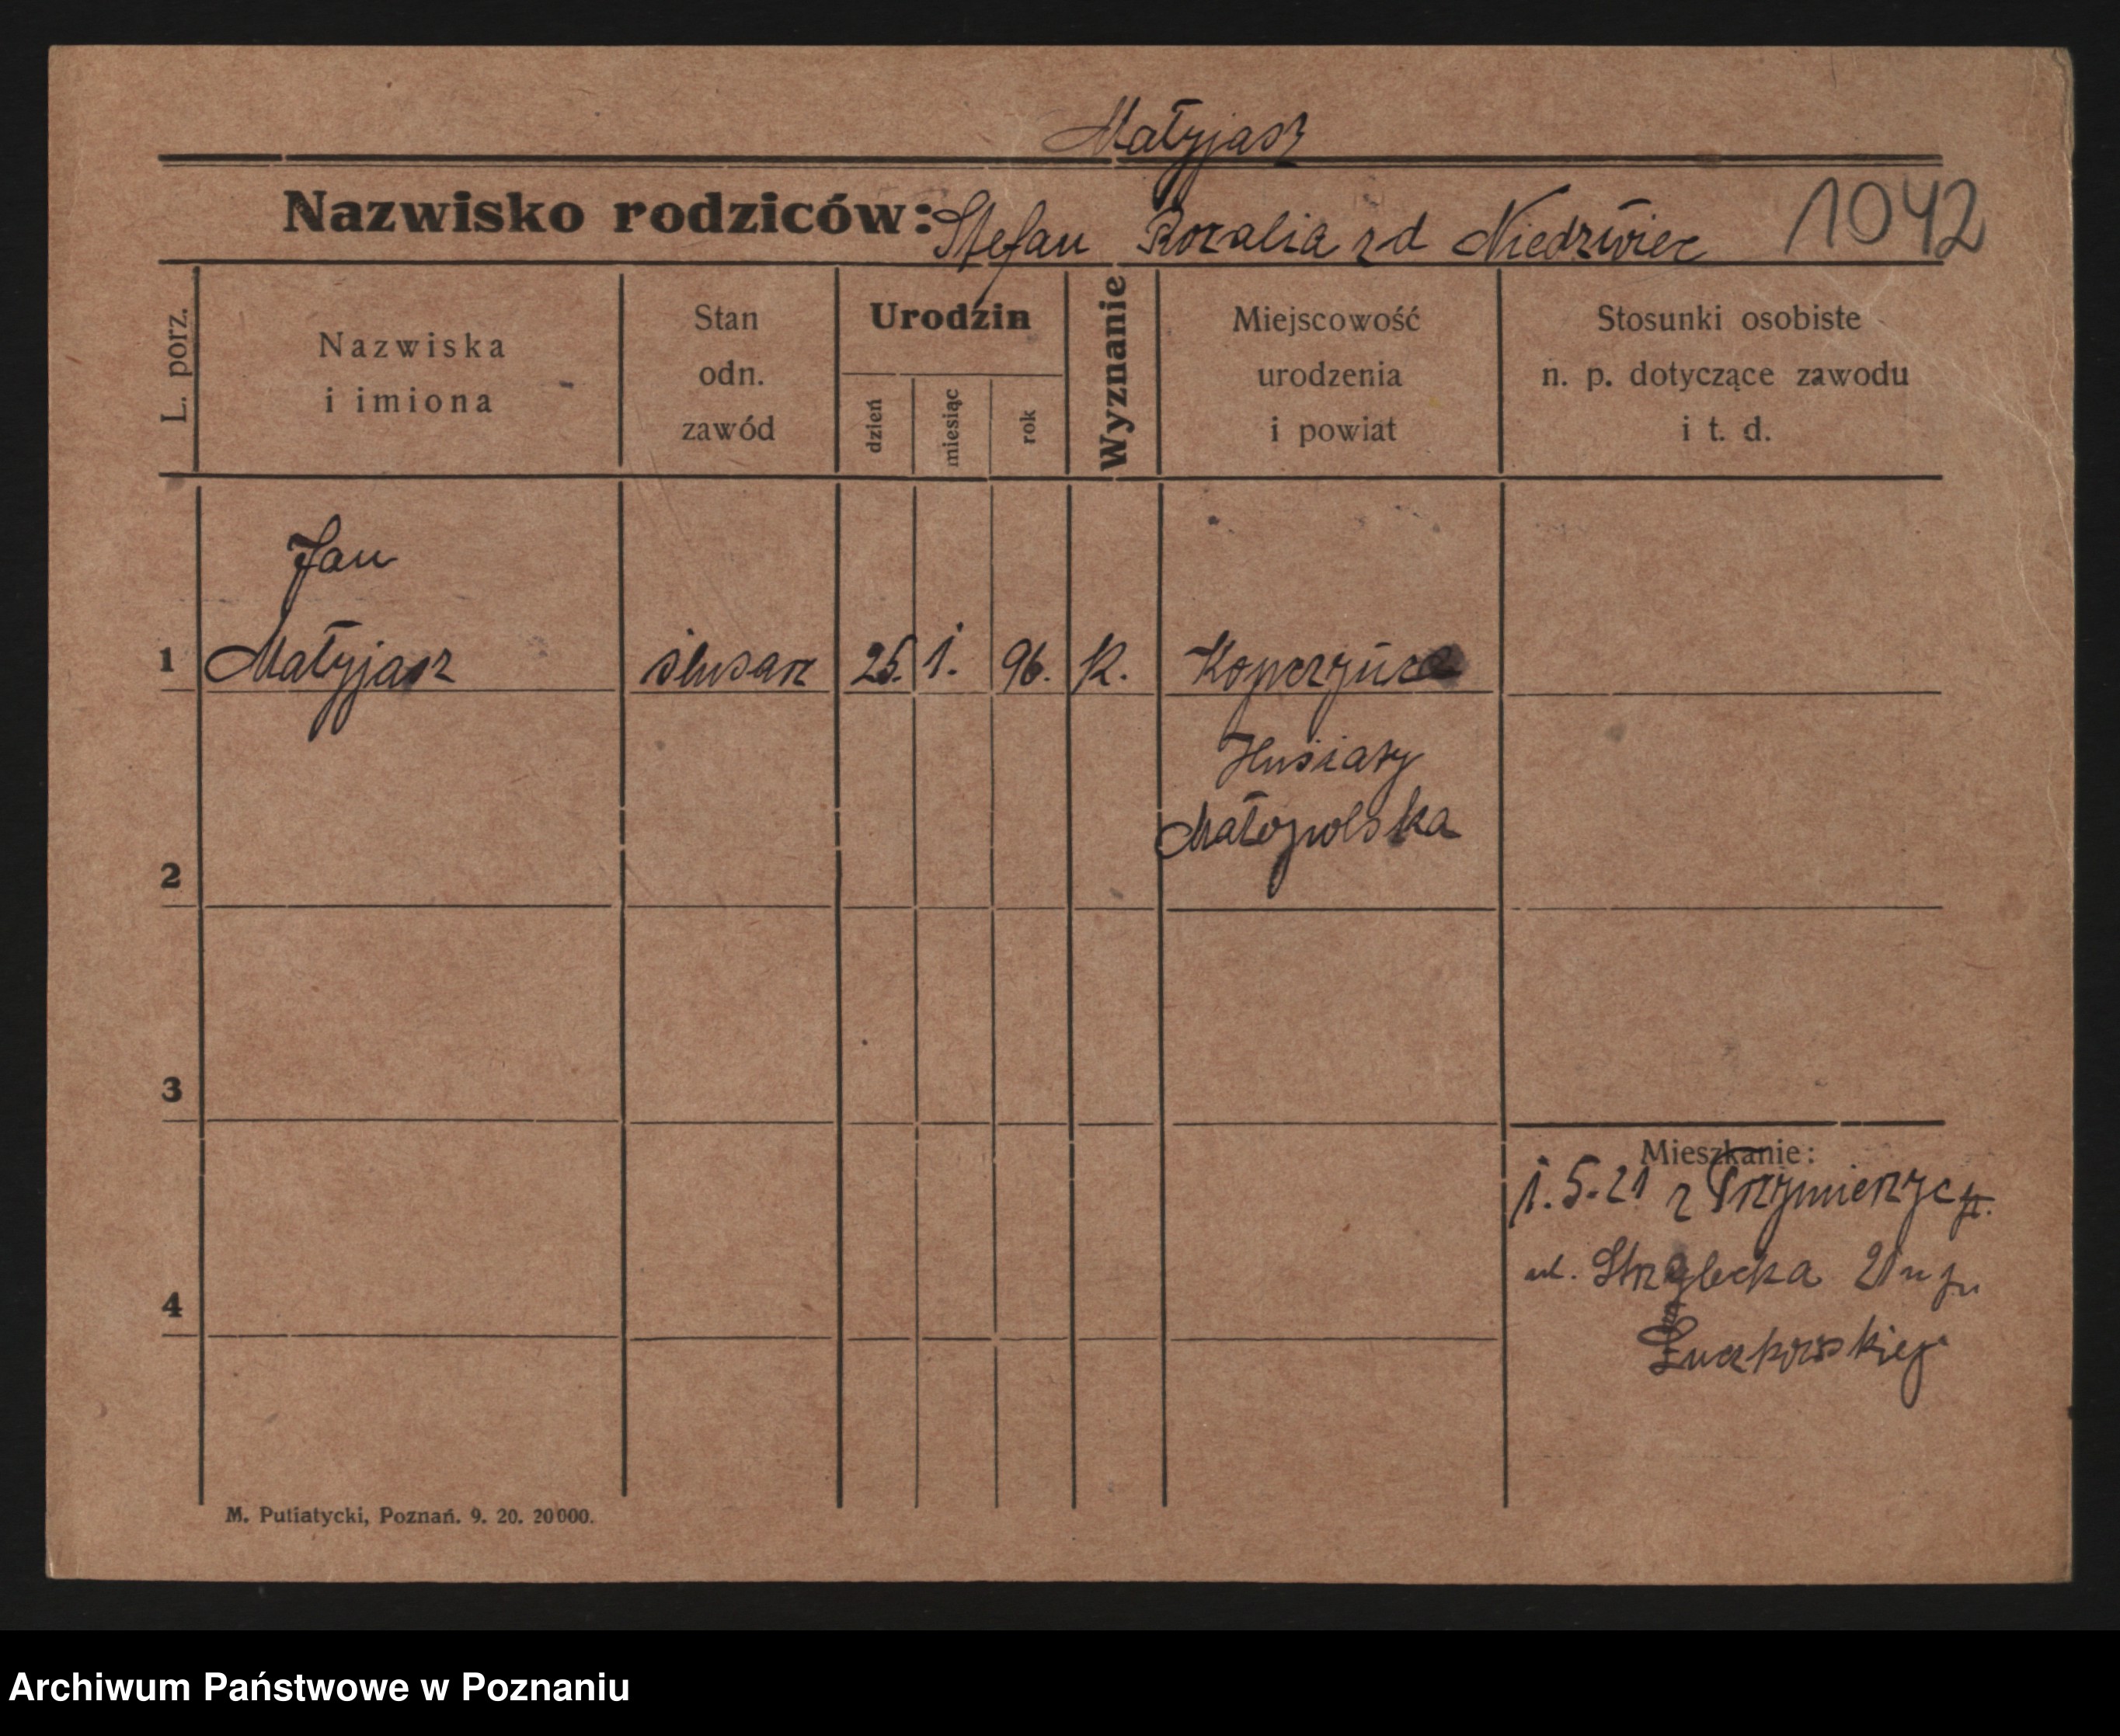 Małyjasz
Nazwisko rodziców: Stefan Rozalia zd Niedzwiec 1042
L. porz.
Nazwiska
i imiona
Stan
odn.
zawód
Urodzin
dzień
miesiąc
rok
Wyznanie
Miejscowość
urodzenia
i powiat
Stosunki osobiste
n. p. dotyczące zawodu
i t. d.
Jan
1 Małyjasz ślusarz 25. 1. 96. K.
Husiaty
Małopolska
2
3
Mieszkanie:
1.5.21 z
ul. Strzelecka
4
M. Putiatycki, Poznań. 9. 20. 20000.
Archiwum Państwowe w Poznaniu